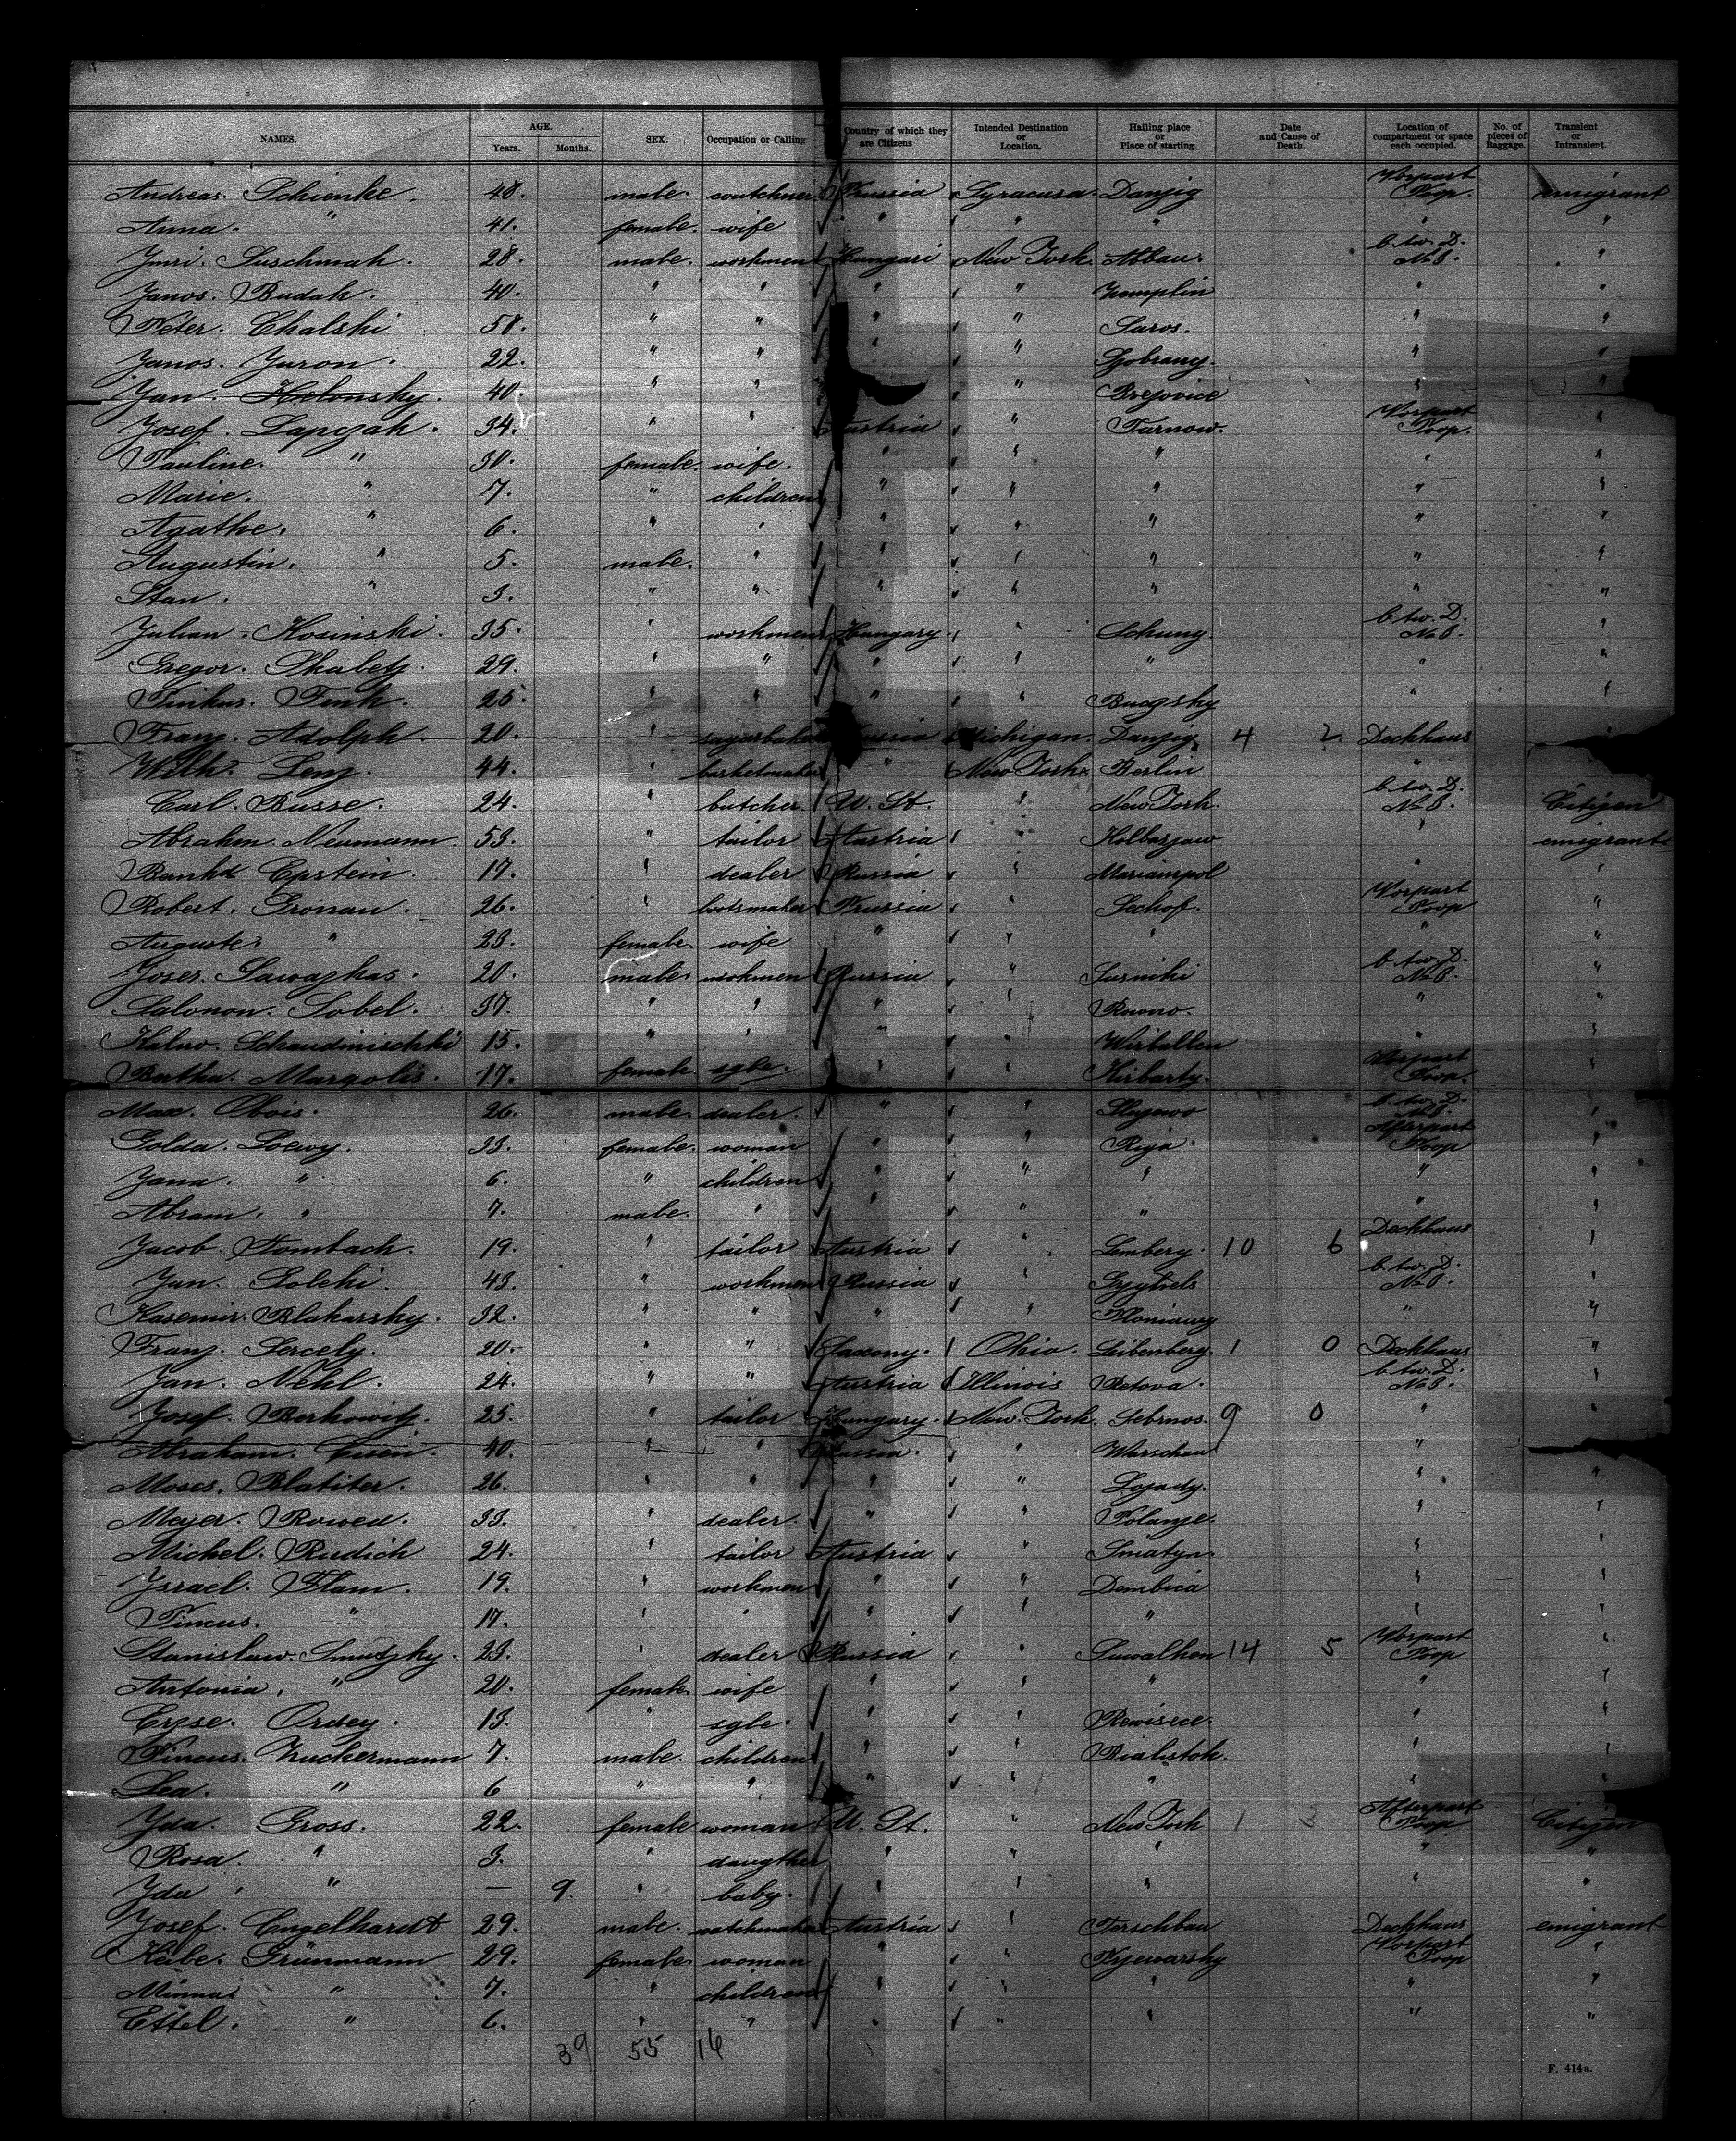 NAMES. AGE. Years. Months. SEX. Occupation or Calling Country of which they are Citizens Intended Destination or Location. Hailing place or Place of starting. Date and Cause of Death. Location of compartment or space each occupied. No. of pieces of Baggage. Transient or Intransient.
Andreas. Schienke. 48. male. Prussia Syracusa. Danzig Vorpart Poop. emigrant
Anna. " 41. female. wife " " " " "
Imri. Suschmak. 28. male. workment Hungari New York. Abbau. b. tw. D. No 8. "
Janos. Budak. 40. " " " " Zemplin " "
Peter. Chalski 58. " " " " Saros. " "
Janos. Juron. 22. " " " " Szobrancz. " "
Jan. Helonsky. 40. " " " " Brejovice " "
Josef. Lapczak. 34. " " Austria " Tarnow. Vorpart Poop. "
Pauline. " 30. female. wife. " " " " "
Marie. " 7. " children " " " " "
Agathe. " 6. " " " " " " "
Augustin. " 5. male. " " " " " "
Stan. " 3. " " " " " " "
Julian. Kosinski. 35. " workment Hungary " Schuny b. tw. D. No 8. "
Gregor. Skabetz. 29. " " " " " " "
Pinkus. Fink. 25. " " " " Buczsky " "
Franz. Adolph. 20. " sugarbaker Russia Michigan. Danzig 4 2. Deckhaus "
Wilh. Lenz. 44. " basketmaker " New York. Berlin " "
Carl. Busse. 24. " butcher. U. St. " New York. b. tw. D. No 8. Citizen
Abrahm. Neumann. 53. " tailor Austria " Kolbarzaw " emigrant.
Epstein. 17. " dealer Russia " Mariampol " "
Robert. Gronau. 26. " bootsmaker Prussia " Seehof. Vorpart Poop "
Auguste. " 23. female. wife " " " " "
Joser. Sawazkas. 20. male. workmen Russia " Surniki b. tw. D. No 8. "
Salomon. Sobel. 37. " " " " Rowno. " "
Kalwo. Schaudinischki 15. " " " " Wirballen " "
Bertha. Margolis. 17. female sgle. " " Kirbarty. Vorpart Poop. "
Max. Obois. 26. male. dealer. " " Slujewo b. tw. D. No 8. "
Golda. Loewy. 33. female. woman " " Riga Afterpart Poop "
Jana. " 6. " children " " " " "
Abram. " 7. male. " " " " " "
Jacob. Stombach. 19. " tailor Austria " Lemberg. 10 6 Deckhaus "
Jan. Solcki. 43. " workmen Russia " b. tw. D. No 8. "
Kasemir. Blakarsky. 32. " " " " Kloniawy " "
Franz. Sercely. 20. " " Saxony. Ohio. Leibenberg. 1 0 Deckhaus "
Jan. Nehl. 24. " " Austria Illinois Retova. b. tw. D. No 8. "
Josef. Berkowitz. 25. " tailor Hungary. New. York. Sebrnos. 9 0 " "
Abraham. Eisen. 40. " " Russia. " Warschau " "
Moses. Blatiter. 26. " " " " Lojady. " "
Meyer. Rowed. 33. " dealer. " " Polanje. " "
Michel. Rudich 24. " tailor Austria " Sniatyn " "
Israel. Flam. 19. " workmen " " Dembica " "
Pincus. " 17. " " " " " " "
Stanislaw. Smudzky. 23. " dealer Russia " Suwalken 14 5 Vorpart Poop "
Antonia. " 20. female wife " " " " "
Erzse. Ordey. 13. " sgle. " " Rewisece. " "
Pincus. Zuckermann 7. male. children " " Bialistok. " "
Lea. " 6 " " " " " " "
Yda. Gross. 22. female woman U. St. " New York 1 3 Afterpart Poop Citizen
Rosa. " 3. " daugther " " " " "
Yda " — 9. " baby. " " " " "
Josef. Engelhardt 29. male. watchmaker Austria " Forschbau Deckhaus emigrant
Keibe. Grünmann 29. female. woman " " Pryewarsky Vorpart Poop "
Minna " 7. " children " " " " "
Ettel. " 6. " " " " " " "
39 55 16
F. 414a.